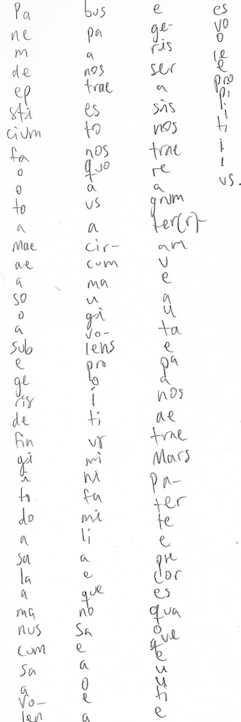 Pa
ne
m
a
de
ep
sti
cium
fa
o
o
to
a
mae
ae
a
so
o
a
sub
e
ge
ris
de
fin
gi
a
to
do
a
sa
la
a
ma
nus
cum
sa
a
vo-
len
bus
pa
a
nos
trae
es
to
nos
quo
a
us
a
cir-
cum
ma
u
gi
vo-
lens
pro
o
i
ti
us
mi
hi
fa
mi
li
a
e
que
no
sa
e
a
o
e
a
e
ge-
ris
ser
a
sis
nos
trae
re
a
grum
ter(r)-
am
v
e
a
u
ta
e
pa
a
nos
ae
trae
Mars
Pa-
ter
te
e
pre
cor
es
qua
o
que
e
u
u
ti
e
es
vo
o
le
e
pro
pi
i
ti
i
i
us.